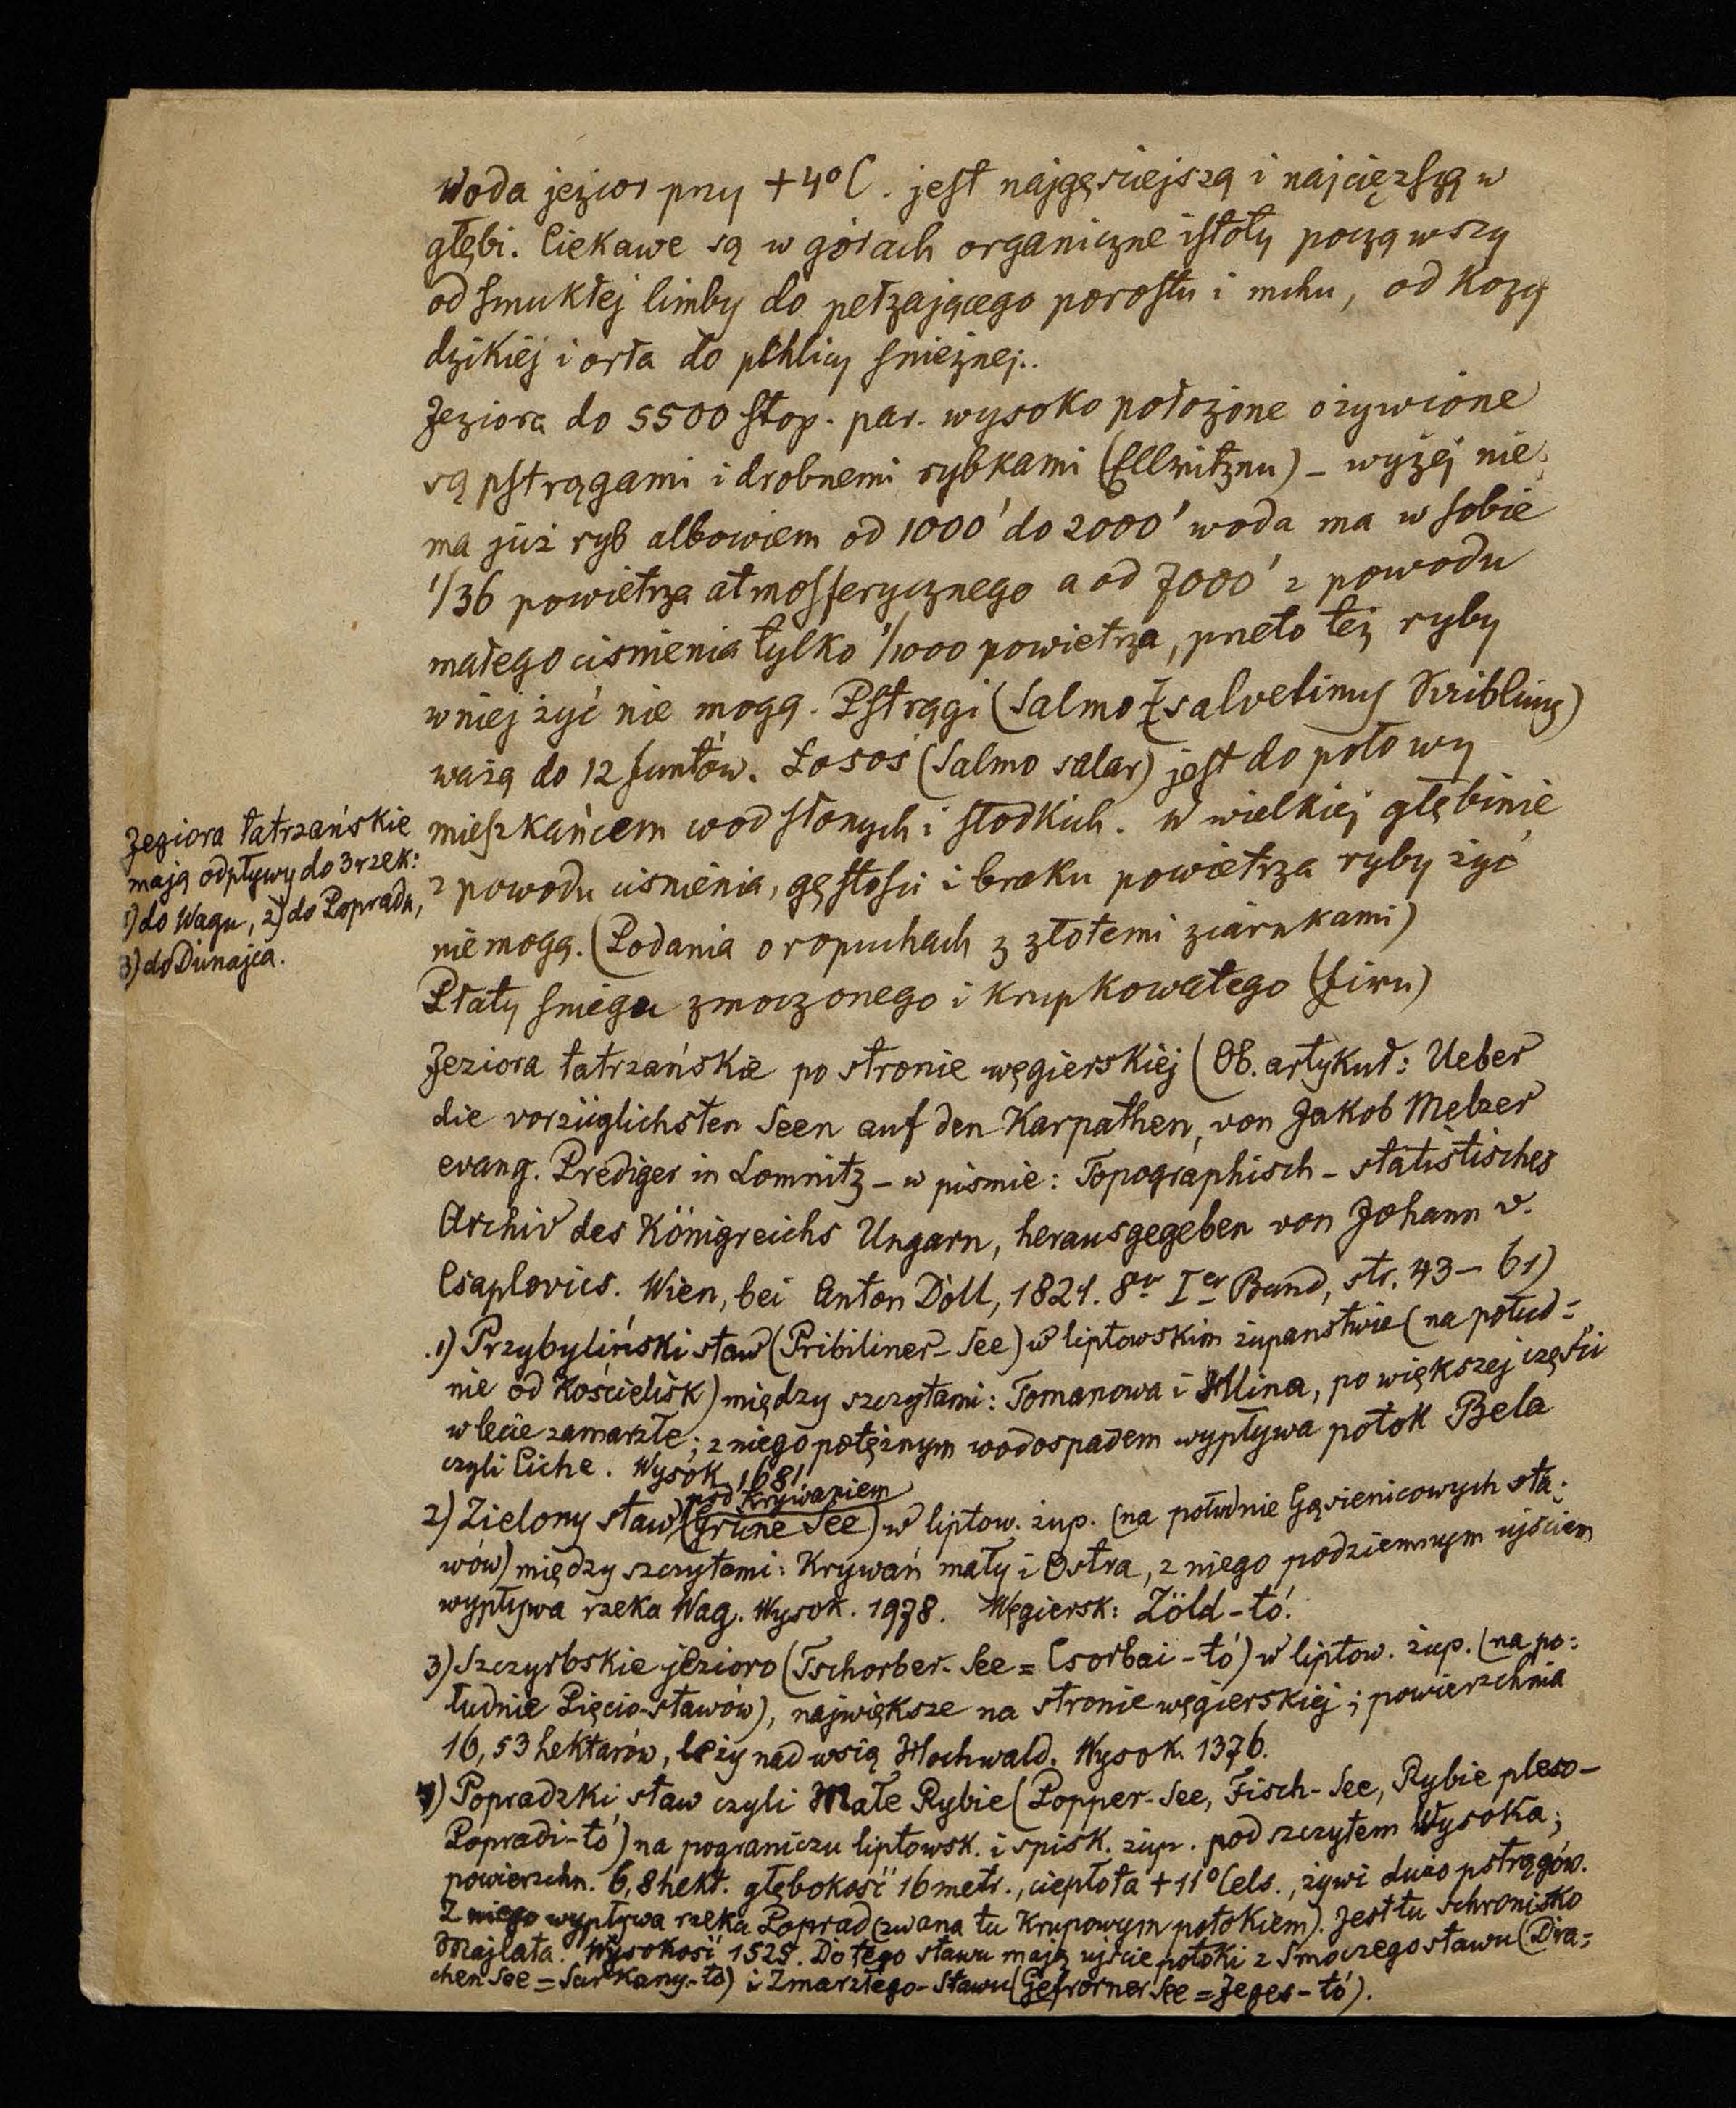 Woda jezior przy +4°C. jest najgęsiejszą i najcięzszą w
głębi. Ciekawe są w górach organiczne istoty począwszy
od smukłej limby do pełzającego porostu i mchu, od Kozy
dzikiéj i orła do pchlicy snieżnej..
Jeziora do 5500 stop. par. wysoko położone ożywione
są pstrągami i drobnemi rybkami (Ellritznu) – wyżéj nie
ma już ryb albowiem od 1000' do 2000' woda ma w sobie
1/36 powietrza atmosferycznego a od 7000' z powodu
małego cisnienia tylko 1/1000 powietrza, przeto też ryby
w niej żyć nie mogą. Pstrągi (Salmo salvelinus)
ważą do 12 funtów. Łosoś (Salmo salar) jest do połowy
mieszkańcem wod słonych i słodkich. W wielkiej głębinie
z powodu cisnienia, gęstości i braku powietrza ryby żyć
nie mogą. (Podania o ropuchach z złotemi ziarnkami)
Płaty sniegu zmoczonego i krupkowatego (firn)
Jeziora tatrzańskie
mają odpływy do 3 rzek:
1) do Wagu, 2) do Popradu,
3) do Dunajca.
Jeziora tatrzańskie po stronie węgierskiéj (Ob. artykuł: Ueber
die vorzüglichsten Seen auf den Karpathen, von Jakob Melzer
evang. Prediger in Lomnitz – w pismie: Topographisch-statistisches
Archiv des Königreichs Ungarn, herausgegeben von Johann v.
Csaplovics. Wien, bei Anton Doll, 1821. 8vo Ier Band, str. 43–61)
1) Przybyliński staw (Pribiliner-See) w liptowskim żupanstwie (na połud=
nie od Kościelisk) między szczytami: Tomanowa i Hlina, po większej części
w lecie zamarzłe; z niego potężnym wodospadem wypływa potok Bela
czyli Ciche. Wysok 1681
pod Krywaniem
2) Zielony staw (Grüne See) w liptow. żup. (na południe Gąsienicowych sta=
wów) między szczytami: Krywań mały i Ostra, z niego podziemnym ujściem
wypływa rzeka Wag. Wysok. 1978. Węgiersk: Zöld-tó.
3) Szczyrbskie jezioro (Tschorber-See = Csorbai-tó) w liptow. żup. (na po=
łudnie Pięcio-stawów), największe na stronie węgierskiéj; powierzchnia
16,53 hektarów, leży nad wsią Hochwald. Wysok. 1376.
4) Popradzki staw czyli Małe Rybie (Popper-See, Fisch-See, Rybie pleso–
Popradi-tó) na pograniczu liptowsk. i spisk. żup. pod szczytem Wysoka;
powierzchn. 6,8 hekt. głębokość 16 metr., ciepłota +11° Cels., żywi dużo pstrągów.
Z niego wypływa rzeka Poprad (zwana tu Krupowym potokiem). Jest tu schronisko
Majlata. Wysokość 1525. Do tego stawu mają ujście potoki z Smoczego stawu (Dra=
chen See = Sarkany-tó) i Zmarzłego-Stawu (Gefrorner See = Jeges-tó).